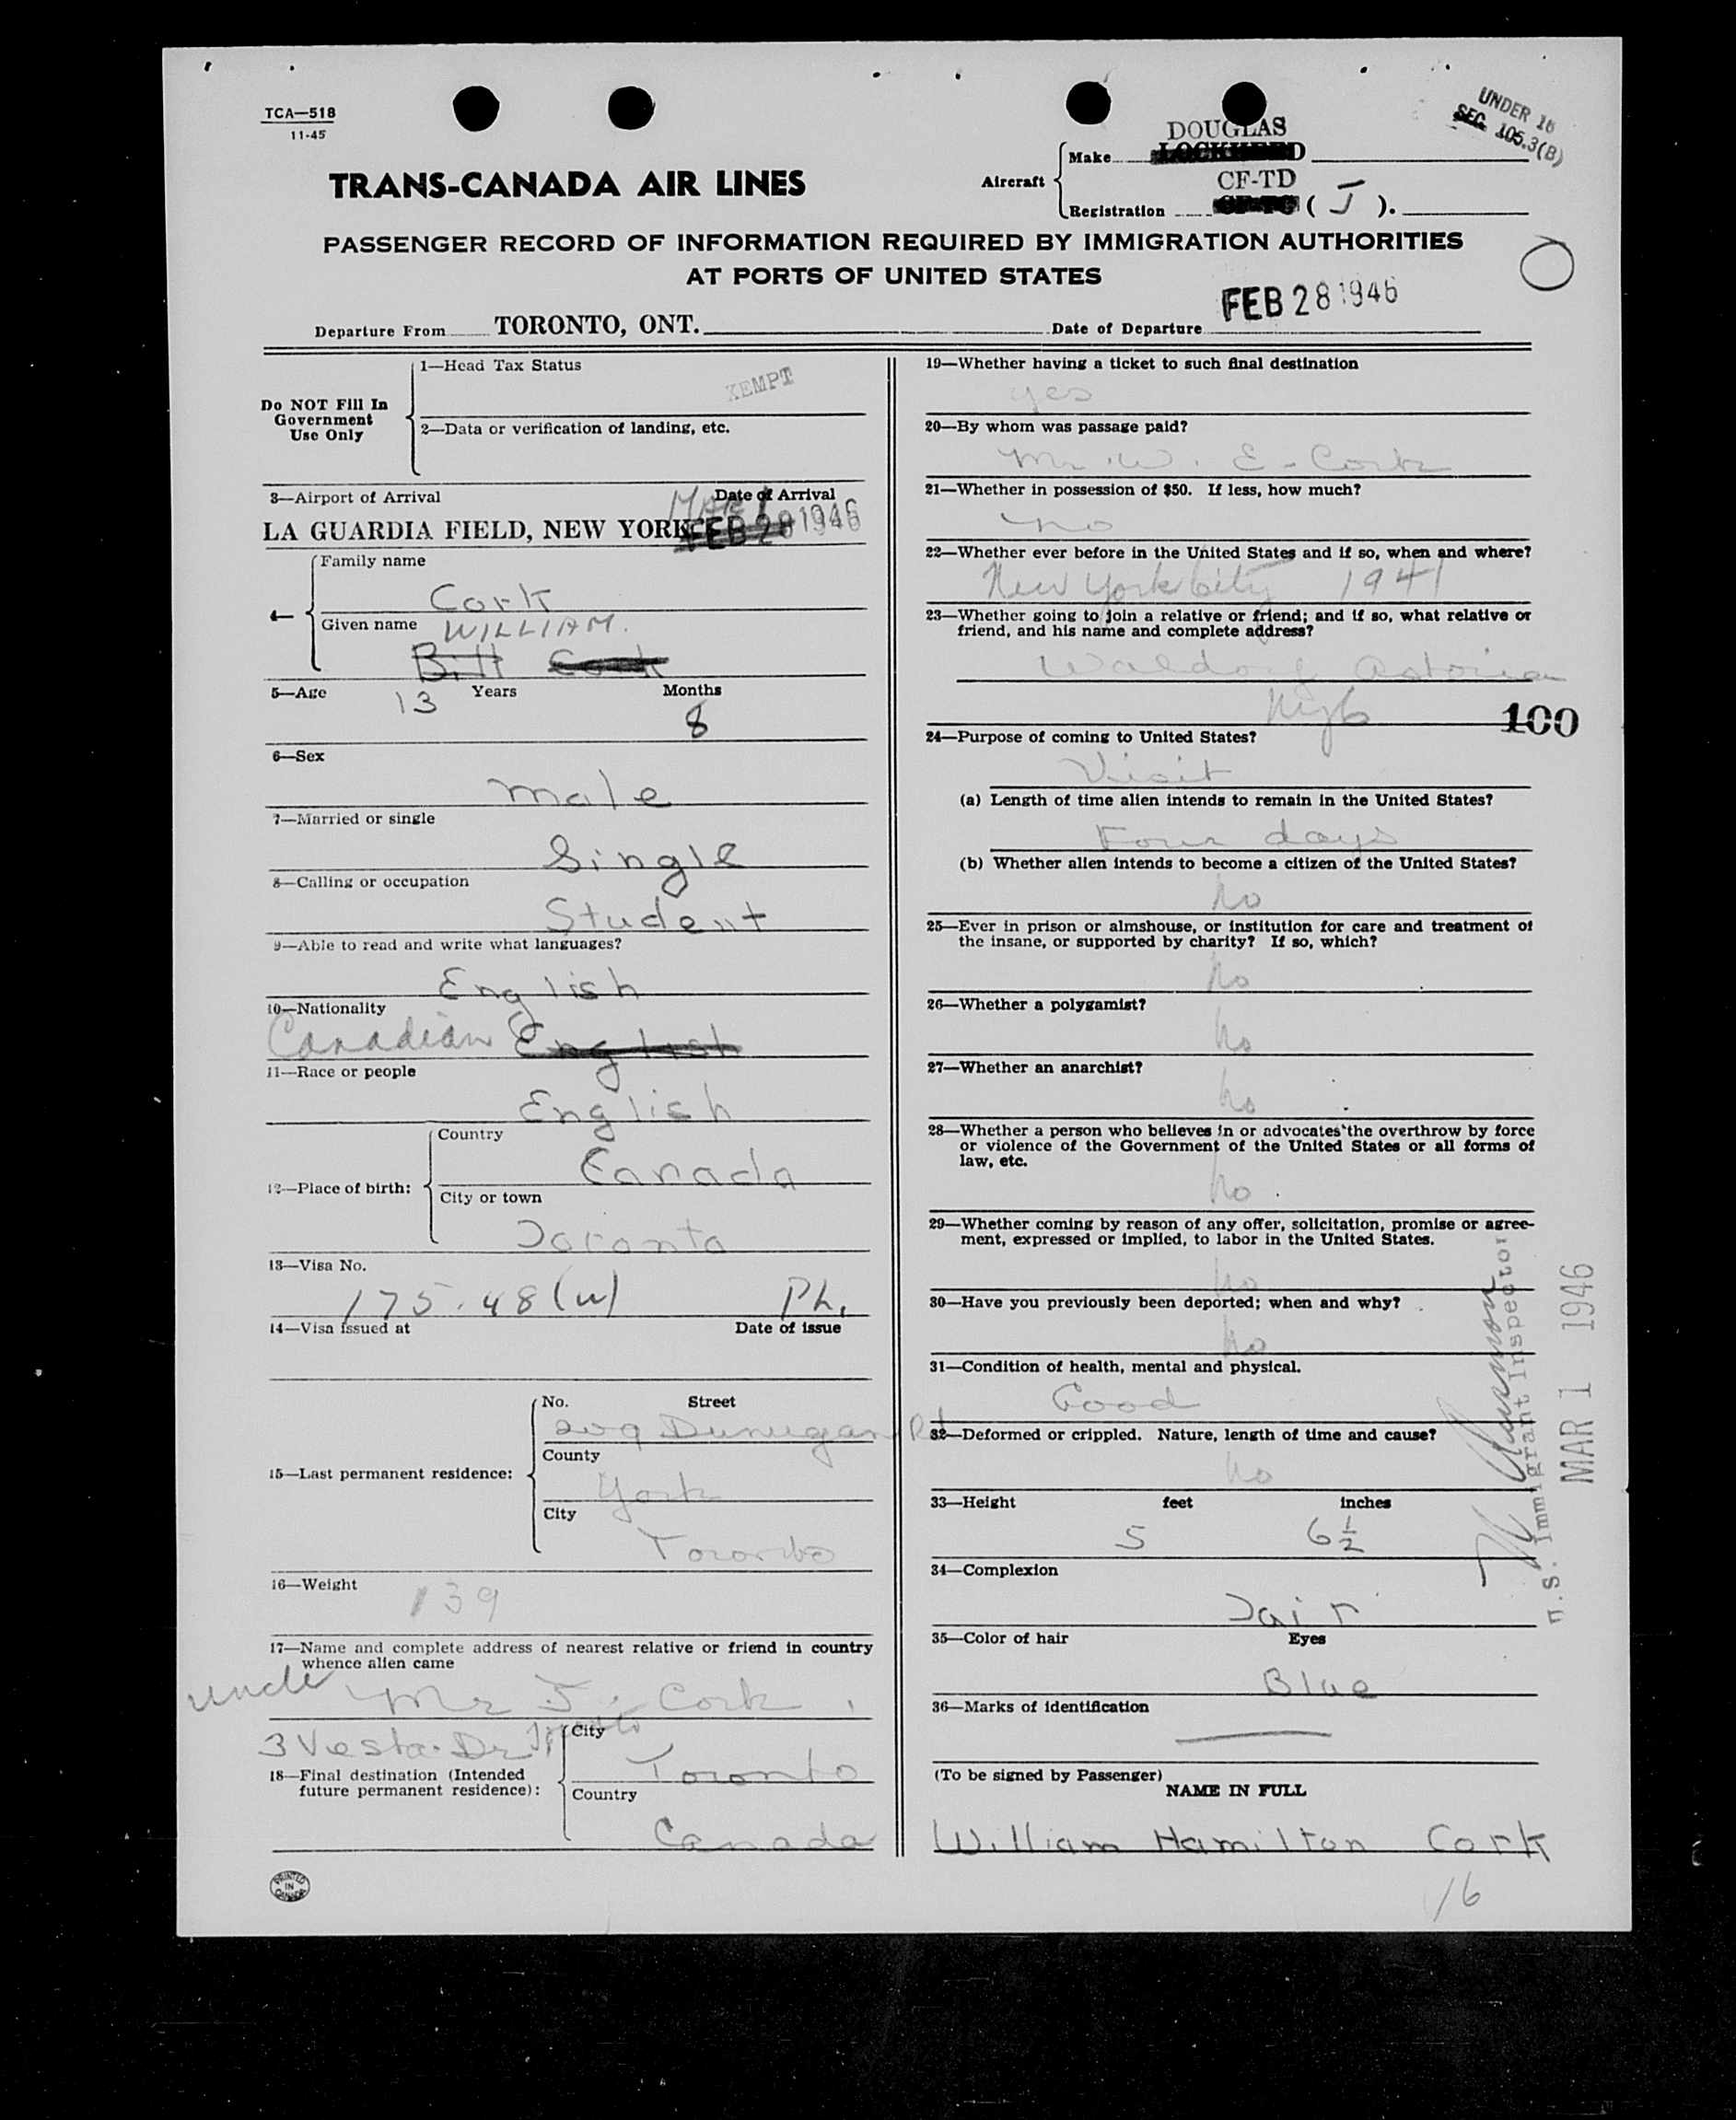 TCA—518
11-45
UNDER 16
SEC. 105.3(B)
TRANS-CANADA AIR LINES
Aircraft
Make DOUGLAS
LOCKHEED
Registration CF-TD
( J ).
PASSENGER RECORD OF INFORMATION REQUIRED BY IMMIGRATION AUTHORITIES
AT PORTS OF UNITED STATES
Departure From TORONTO, ONT. Date of Departure FEB 28 1946
Do NOT Fill In
Government
Use Only
1—Head Tax Status
XEMPT
2—Data or verification of landing, etc.
3—Airport of Arrival Date of Arrival
MAR 1
LA GUARDIA FIELD, NEW YORK FEB 28 1946
4—
Family name
Cork
Given name WILLIAM.
Bill Cork
5—Age 13 Years Months
8
6—Sex
male
7—Married or single
Single
8—Calling or occupation
Student
9—Able to read and write what languages?
English
10—Nationality
Canadian English
11—Race or people
English
12—Place of birth:
Country
Canada
City or town
Toronto
13—Visa No.
175.48(w) Ph.
14—Visa issued at Date of issue
15—Last permanent residence:
No. Street
209 Dunvegan Rd
County
York
City
Toronto
16—Weight 139
17—Name and complete address of nearest relative or friend in country
whence alien came
uncle Mr J. Cork
3 Vesta Dr Toronto
18—Final destination (Intended
future permanent residence):
City
Toronto
Country
Canada
PRINTED
IN
CANADA
19—Whether having a ticket to such final destination
yes
20—By whom was passage paid?
Mr. W. E. Cork
21—Whether in possession of $50. If less, how much?
no
22—Whether ever before in the United States and if so, when and where?
New York City 1941
23—Whether going to join a relative or friend; and if so, what relative or
friend, and his name and complete address?
Waldorf Astoria
NYC
100
24—Purpose of coming to United States?
Visit
(a) Length of time alien intends to remain in the United States?
Four days
(b) Whether alien intends to become a citizen of the United States?
no
25—Ever in prison or almshouse, or institution for care and treatment of
the insane, or supported by charity? If so, which?
no
26—Whether a polygamist?
no
27—Whether an anarchist?
no
28—Whether a person who believes in or advocates the overthrow by force
or violence of the Government of the United States or all forms of
law, etc.
no.
29—Whether coming by reason of any offer, solicitation, promise or agree-
ment, expressed or implied, to labor in the United States.
no
30—Have you previously been deported; when and why?
no
31—Condition of health, mental and physical.
Good
32—Deformed or crippled. Nature, length of time and cause?
no
33—Height feet inches
5 6 1/2
34—Complexion
Fair
35—Color of hair Eyes
Blue
36—Marks of identification
(To be signed by Passenger)
NAME IN FULL
William Hamilton Cork
16
U.S. Immigrant Inspector
MAR 1 1946